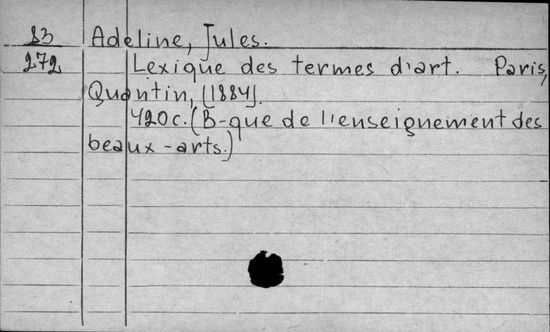 83 Adeline, Jules.
272 Lexique des termes d'art. Paris,
Quantin, [1884].
420c. (B-que de l'enseignement des
beaux-arts.)